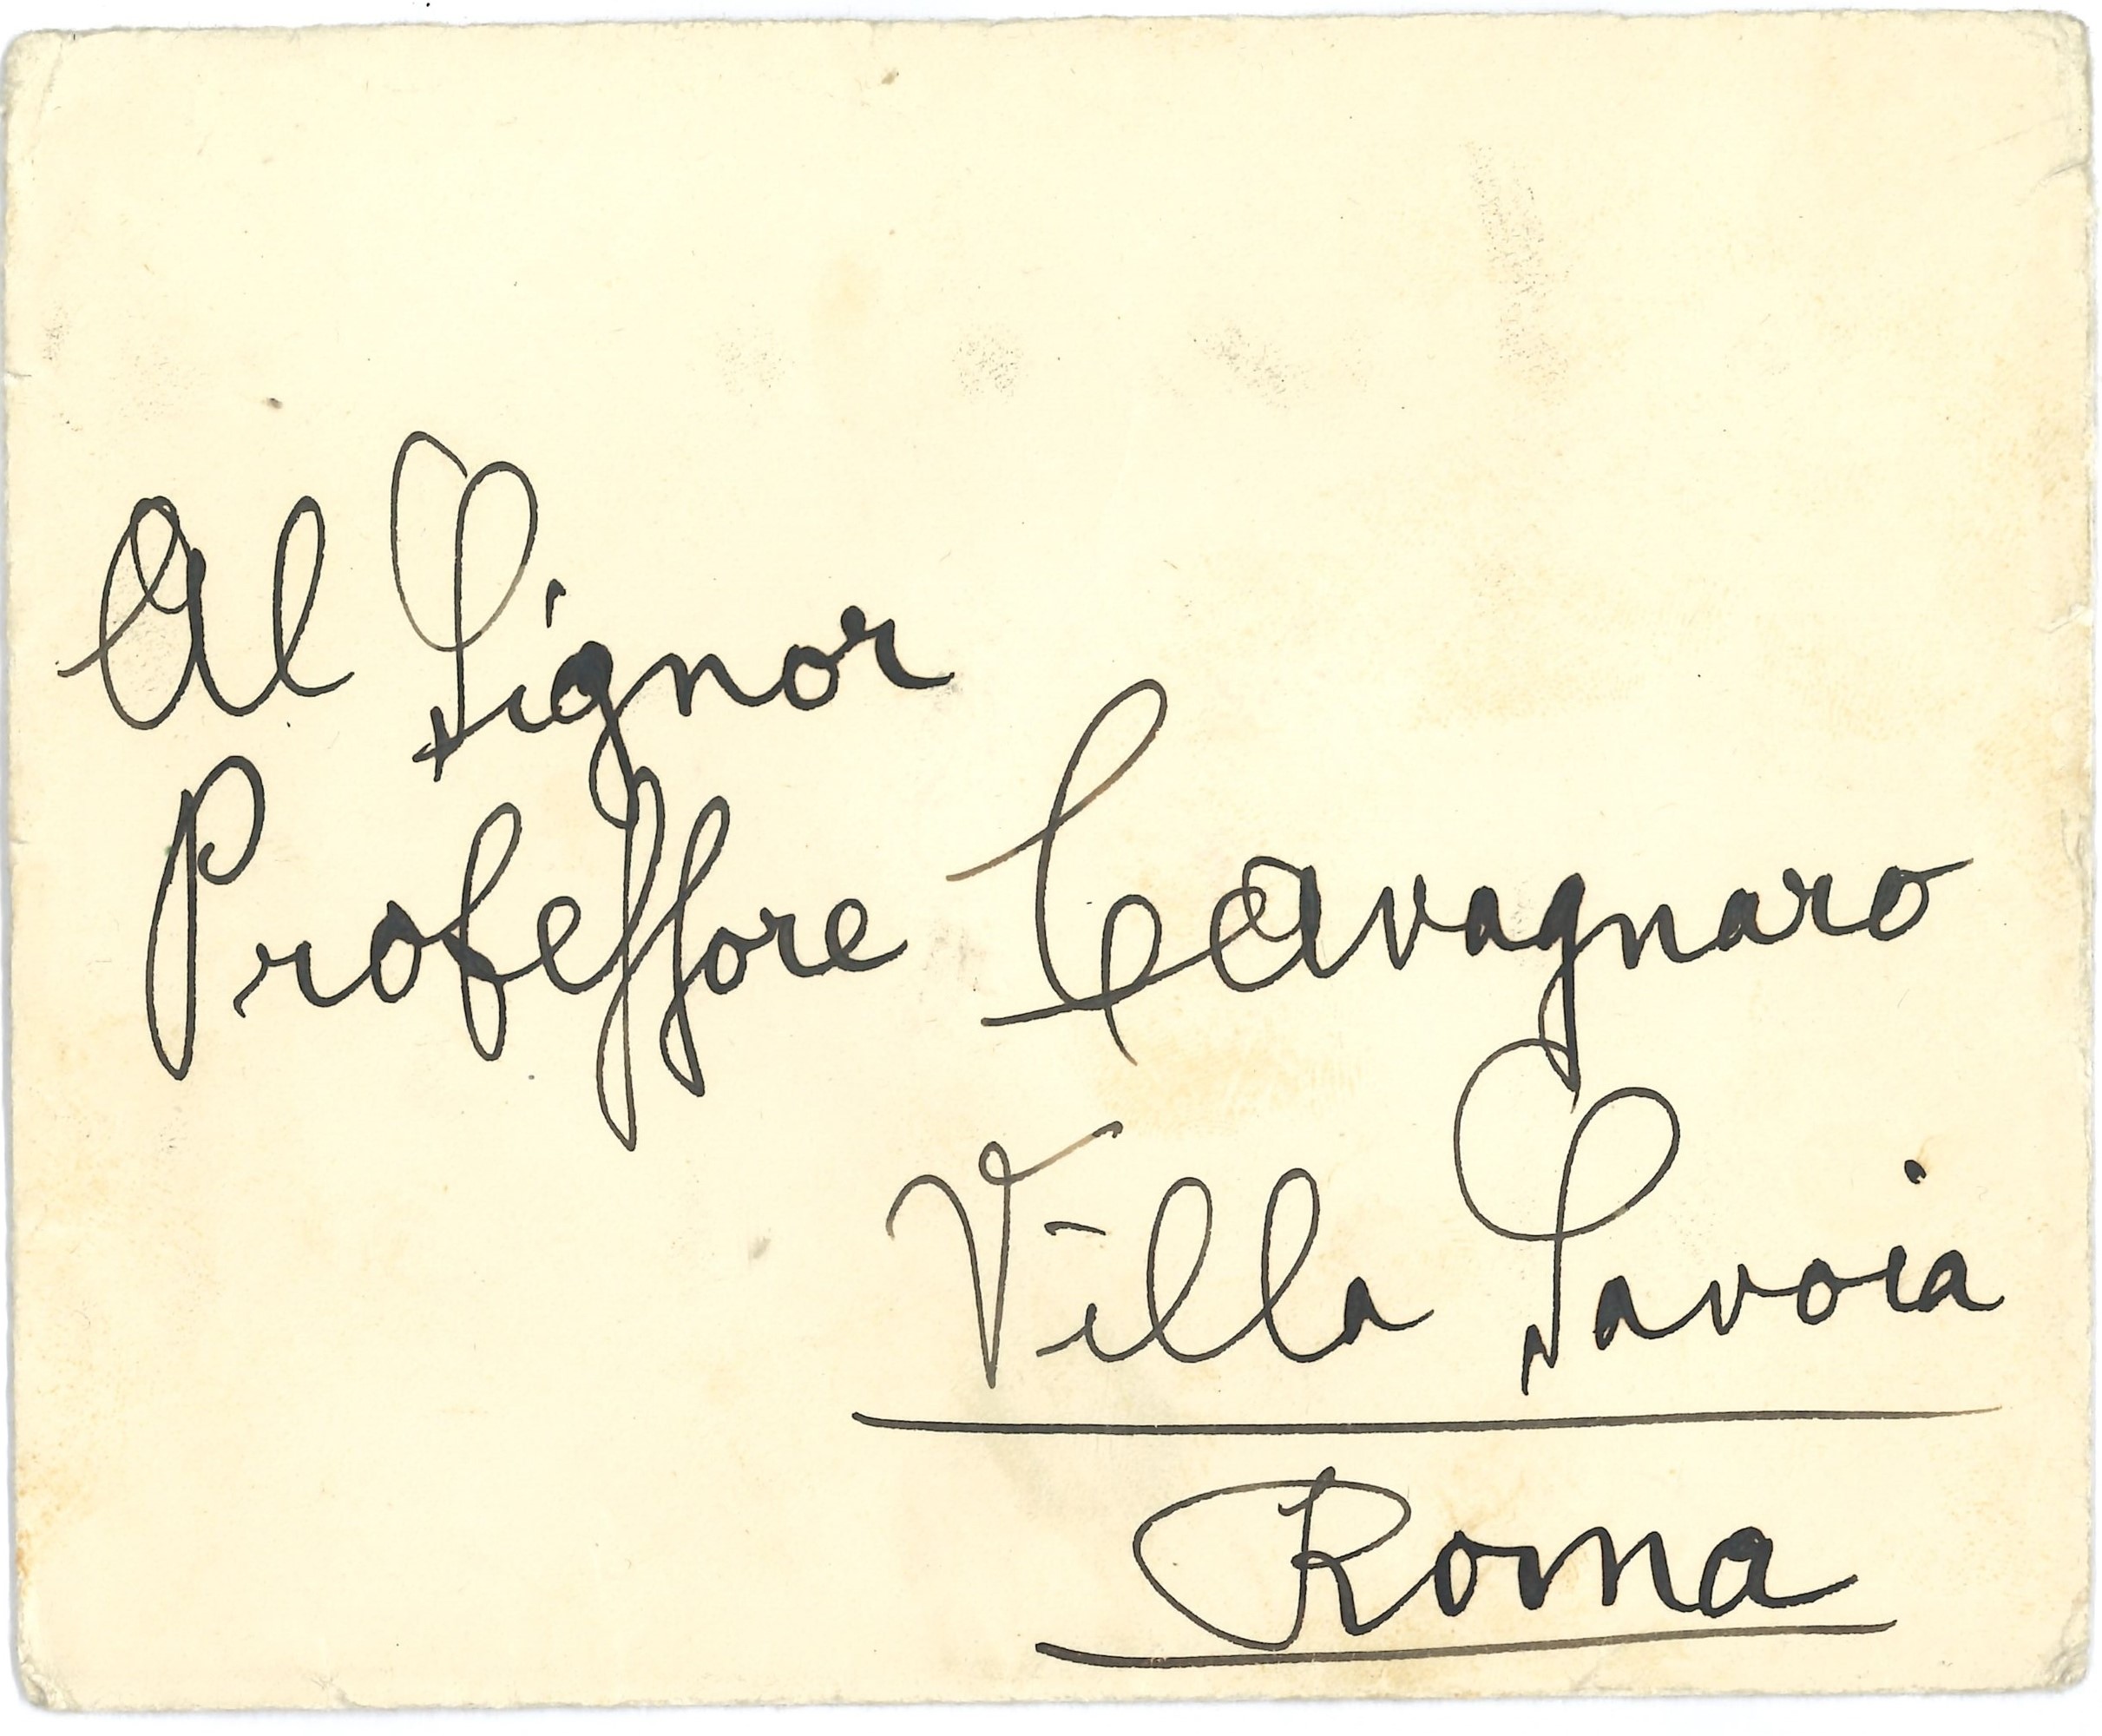 Al Signor
Professore Cavagnaro
Villa Savoia
Roma